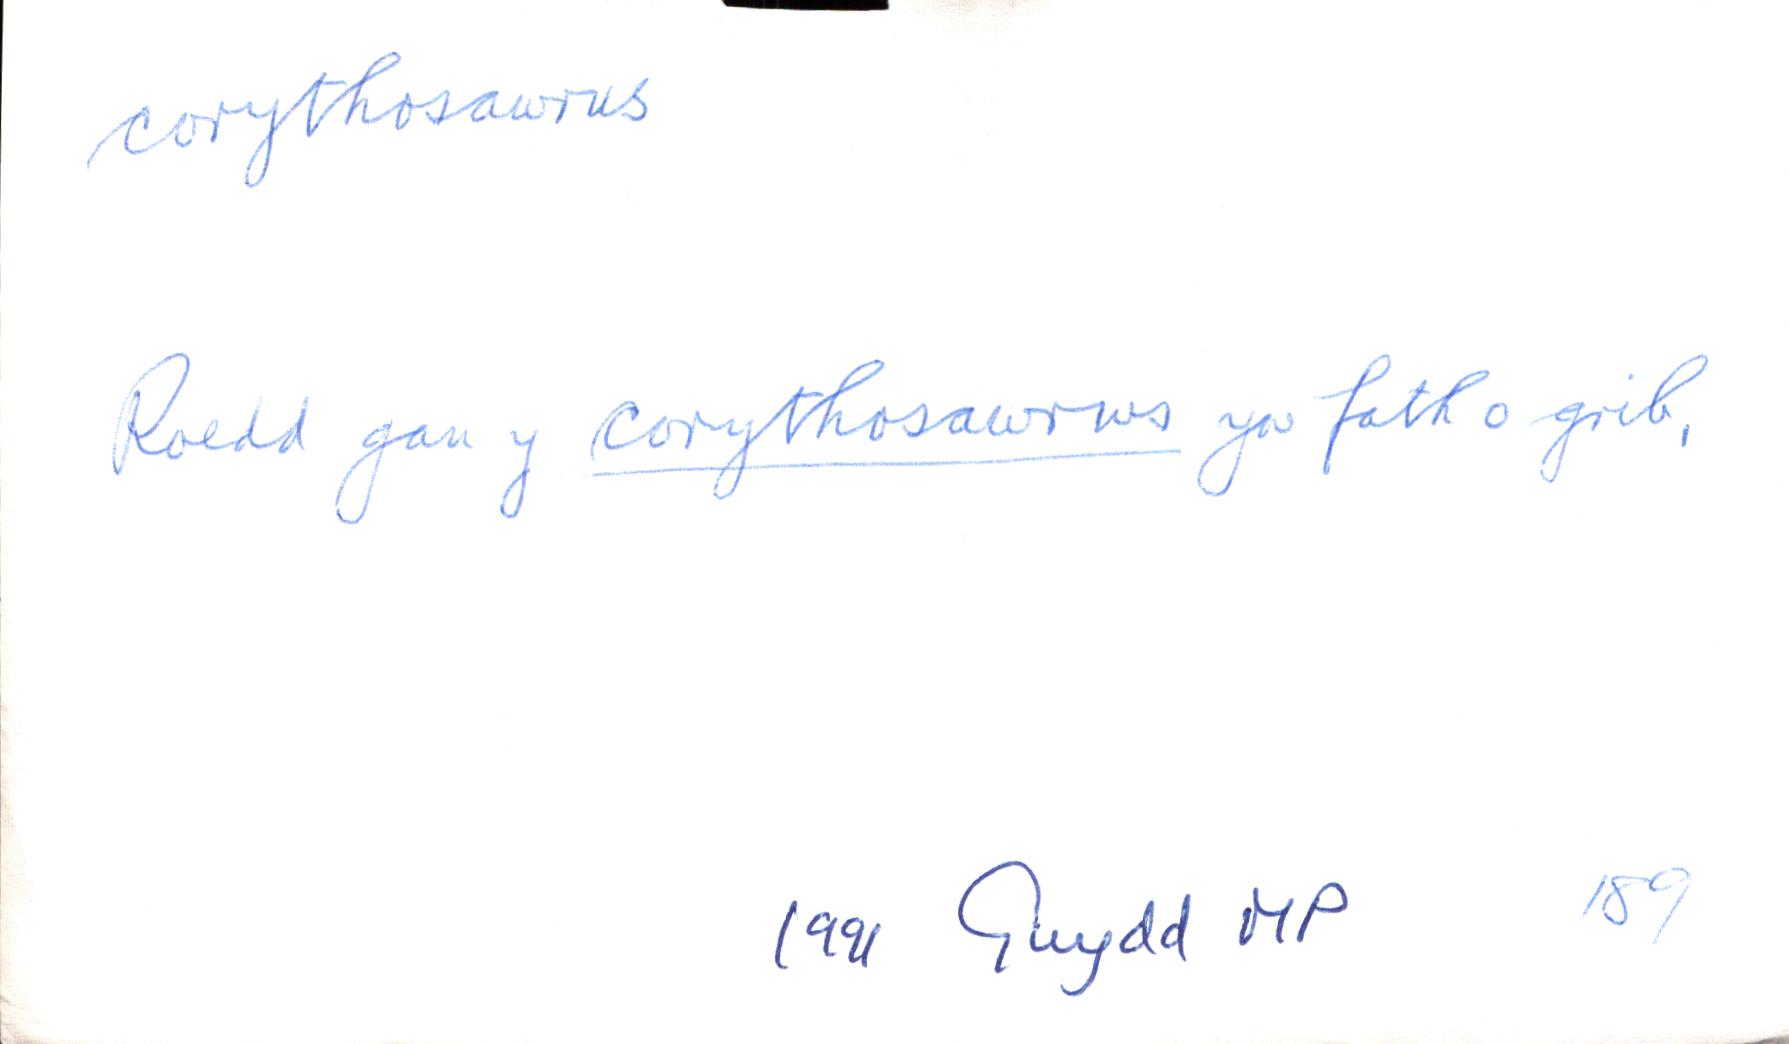 corythosawrus
Roedd gan y corythosawrws yw fath o grib,
1991 Gwydd MP 189